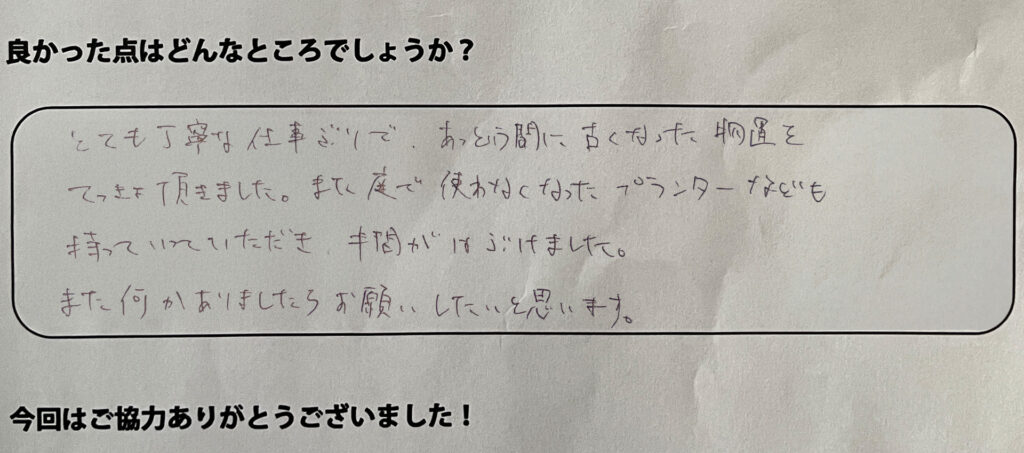 良かった点はどんなところでしょうか？
とても丁寧な仕事ぶりで、あっという間に古くなった物置を
てっきょ頂きました。また庭で使わなくなったプランターなども
持っていっていただき、手間がはぶけました。
また何かありましたらお願いしたいと思います。
今回はご協力ありがとうございました！